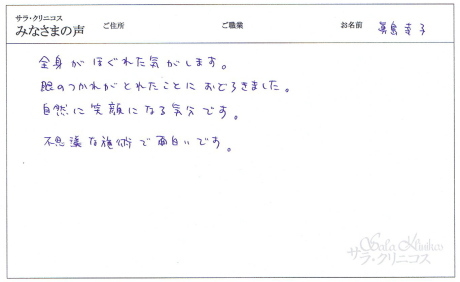 サラ・クリニコス
みなさまの声 ご住所 ご職業 お名前
全身が ほぐれた気がします。
眼のつかれがとれたことに おどろきました。
自然に 笑顔になる気分です。
不思議な施術で面白いです。
Sala Klinikos
サラ・クリニコス